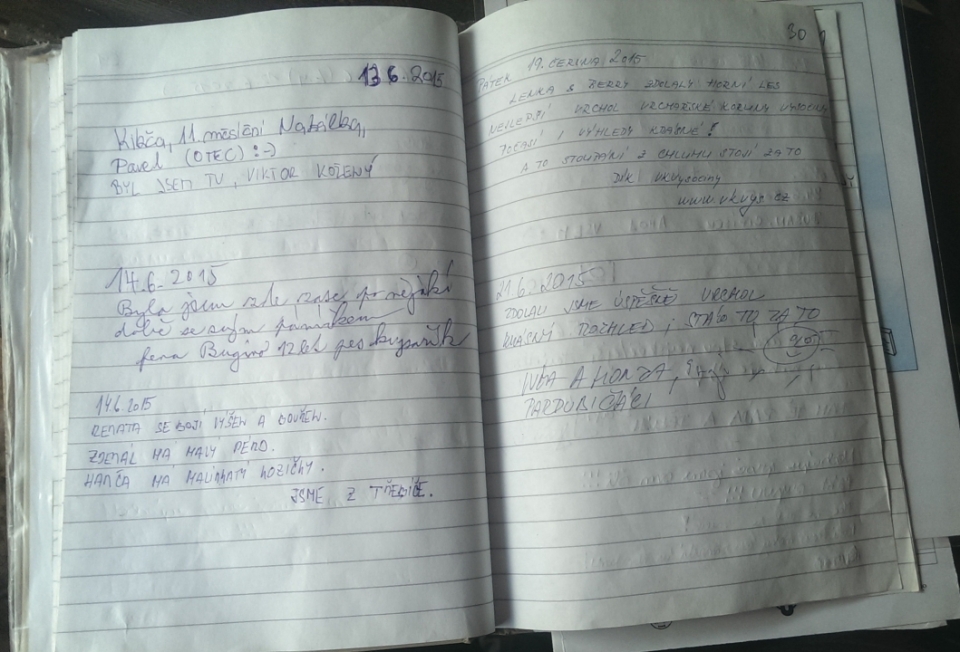 13.6.2015
Klička, 11. měsíční Natálka,
Pavel (OTEC) :-)
BYL JSEM TU, VIKTOR KOŽENÝ
14.6.2015
Byla jsem zde zase po nějaké
době se svým
fena 12 let pes
14.6.2015
RENATA SE BOJÍ VÝŠEK A BOUŘEK.
MÁ MALÝ PÉRO.
HANČA MÁ KOZIČKY.
JSME Z TŘEBÍČE.
30
PÁTEK 19. ČERVNA 2015
LENKA S BERRY ZDOLALY HORNÍ LES
NEJLEPŠÍ VRCHOL VRCHAŘSKÉ KORUNY VYSOČINY
POČASÍ I VÝHLEDY KRÁSNÉ!
A TO STOUPÁNÍ Z CHLUMU STOJÍ ZA TO
DÍK
21.6.2015
ZDOLALI JSME ÚSPĚŠNĚ VRCHOL
KRÁSNÝ ROZHLED, STÁLO TO ZA TO
IVČA A HONZA,
PARDUBIČÁCI